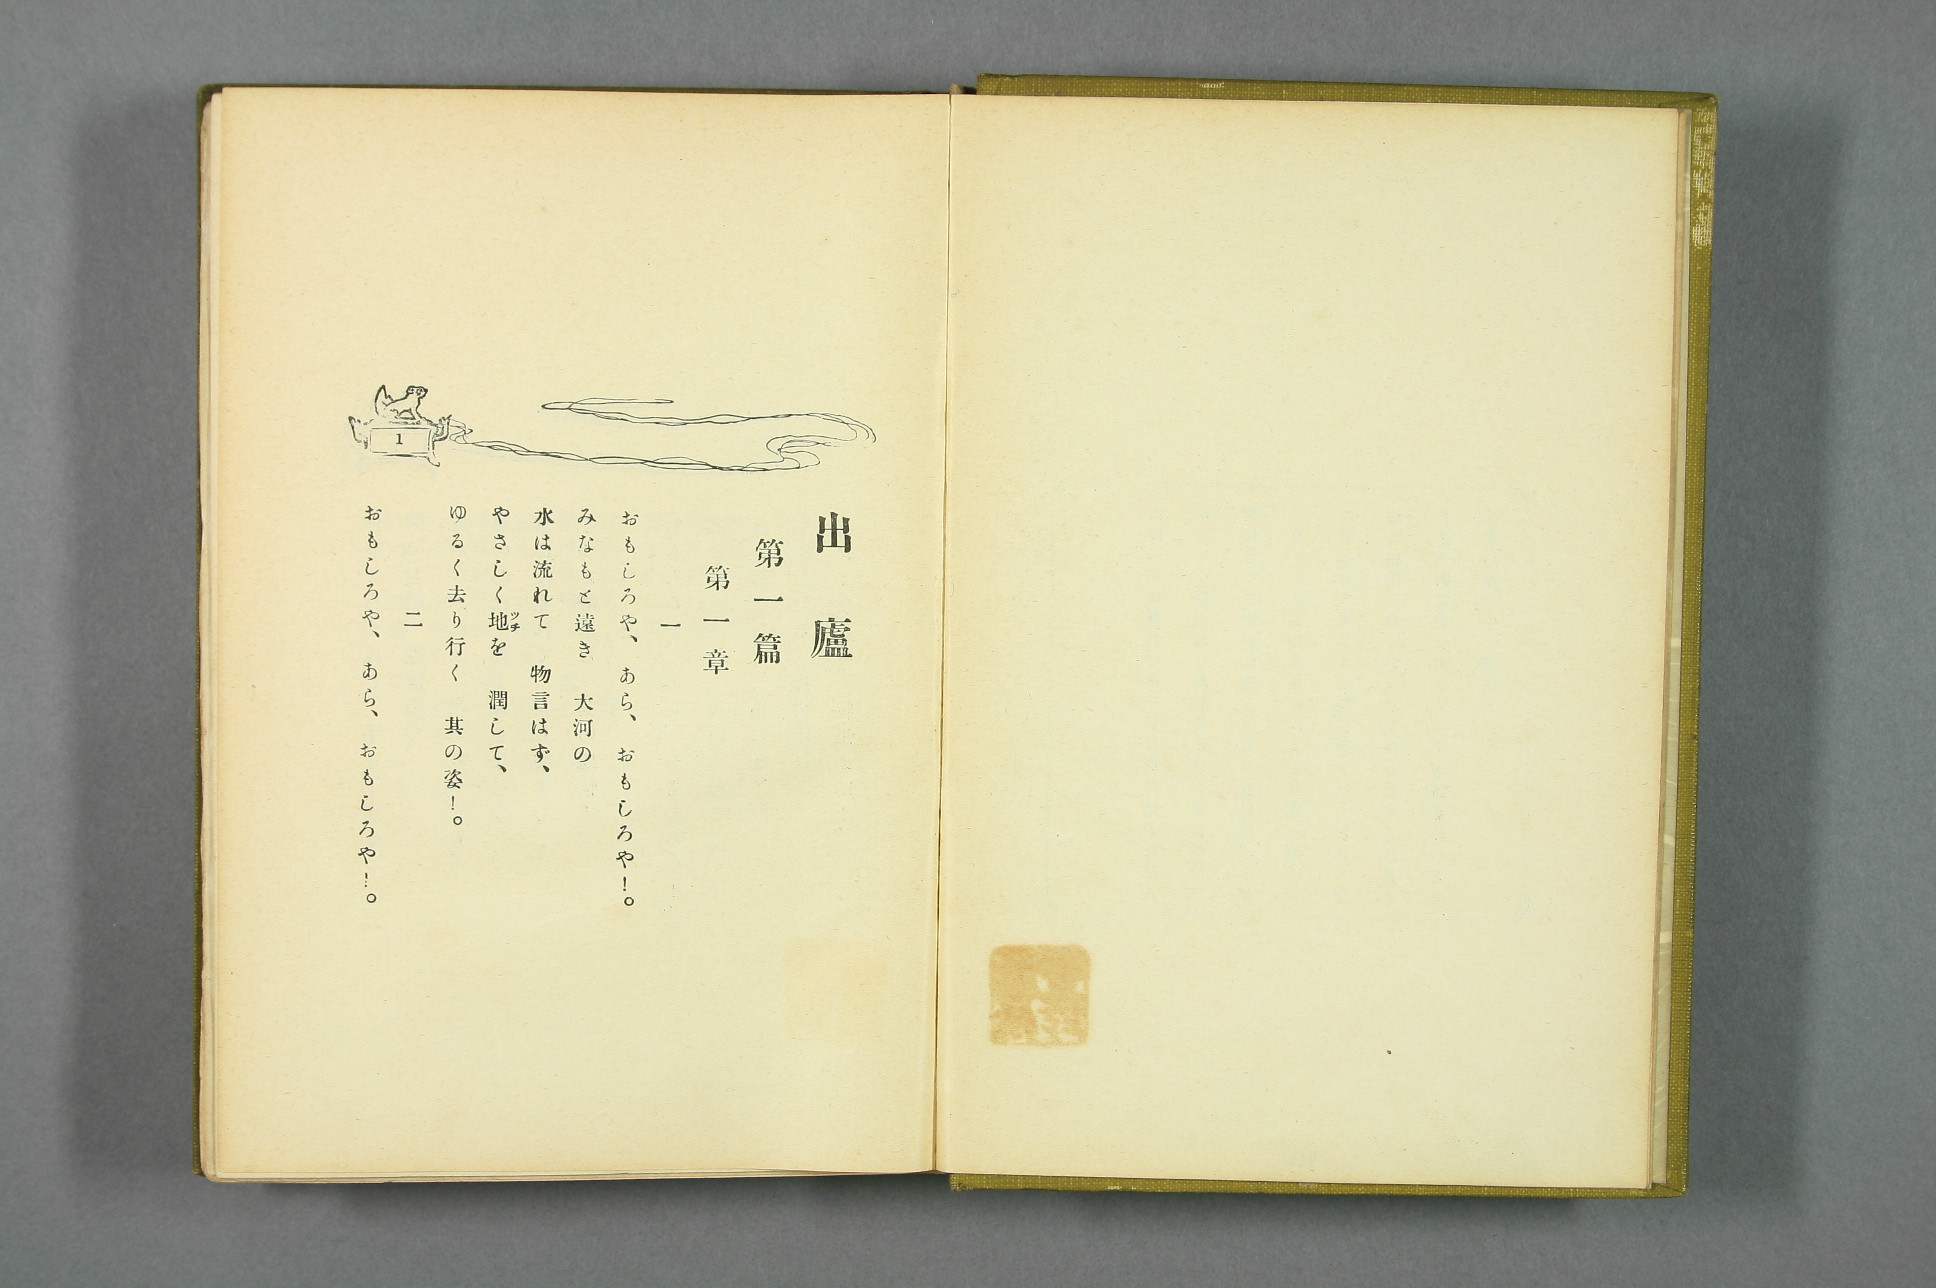 出廬
第一篇
第一章
一
おもしろや、あら、おもしろや!。
みなもと遠き 大河の
水は流れて 物言はず、
やさしく地ツチを 潤して、
ゆるく去り行く 其の姿!。
二
おもしろや、あら、おもしろや!。
1